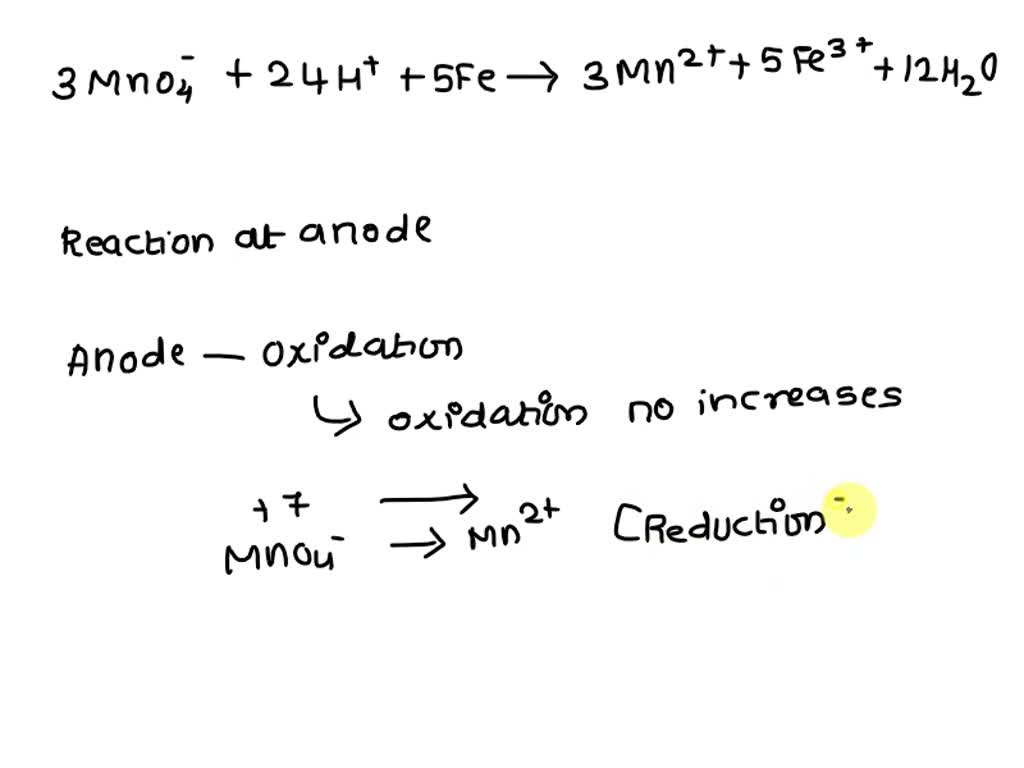 3 MnO₄⁻ + 24H⁺ + 5Fe → 3 Mn²⁺ + 5 Fe³⁺ + 12H₂O
Reaction at anode
Anode — oxidation
↳ oxidation no increases
+7 →
MnO₄⁻ → Mn²⁺ [Reduction⁻